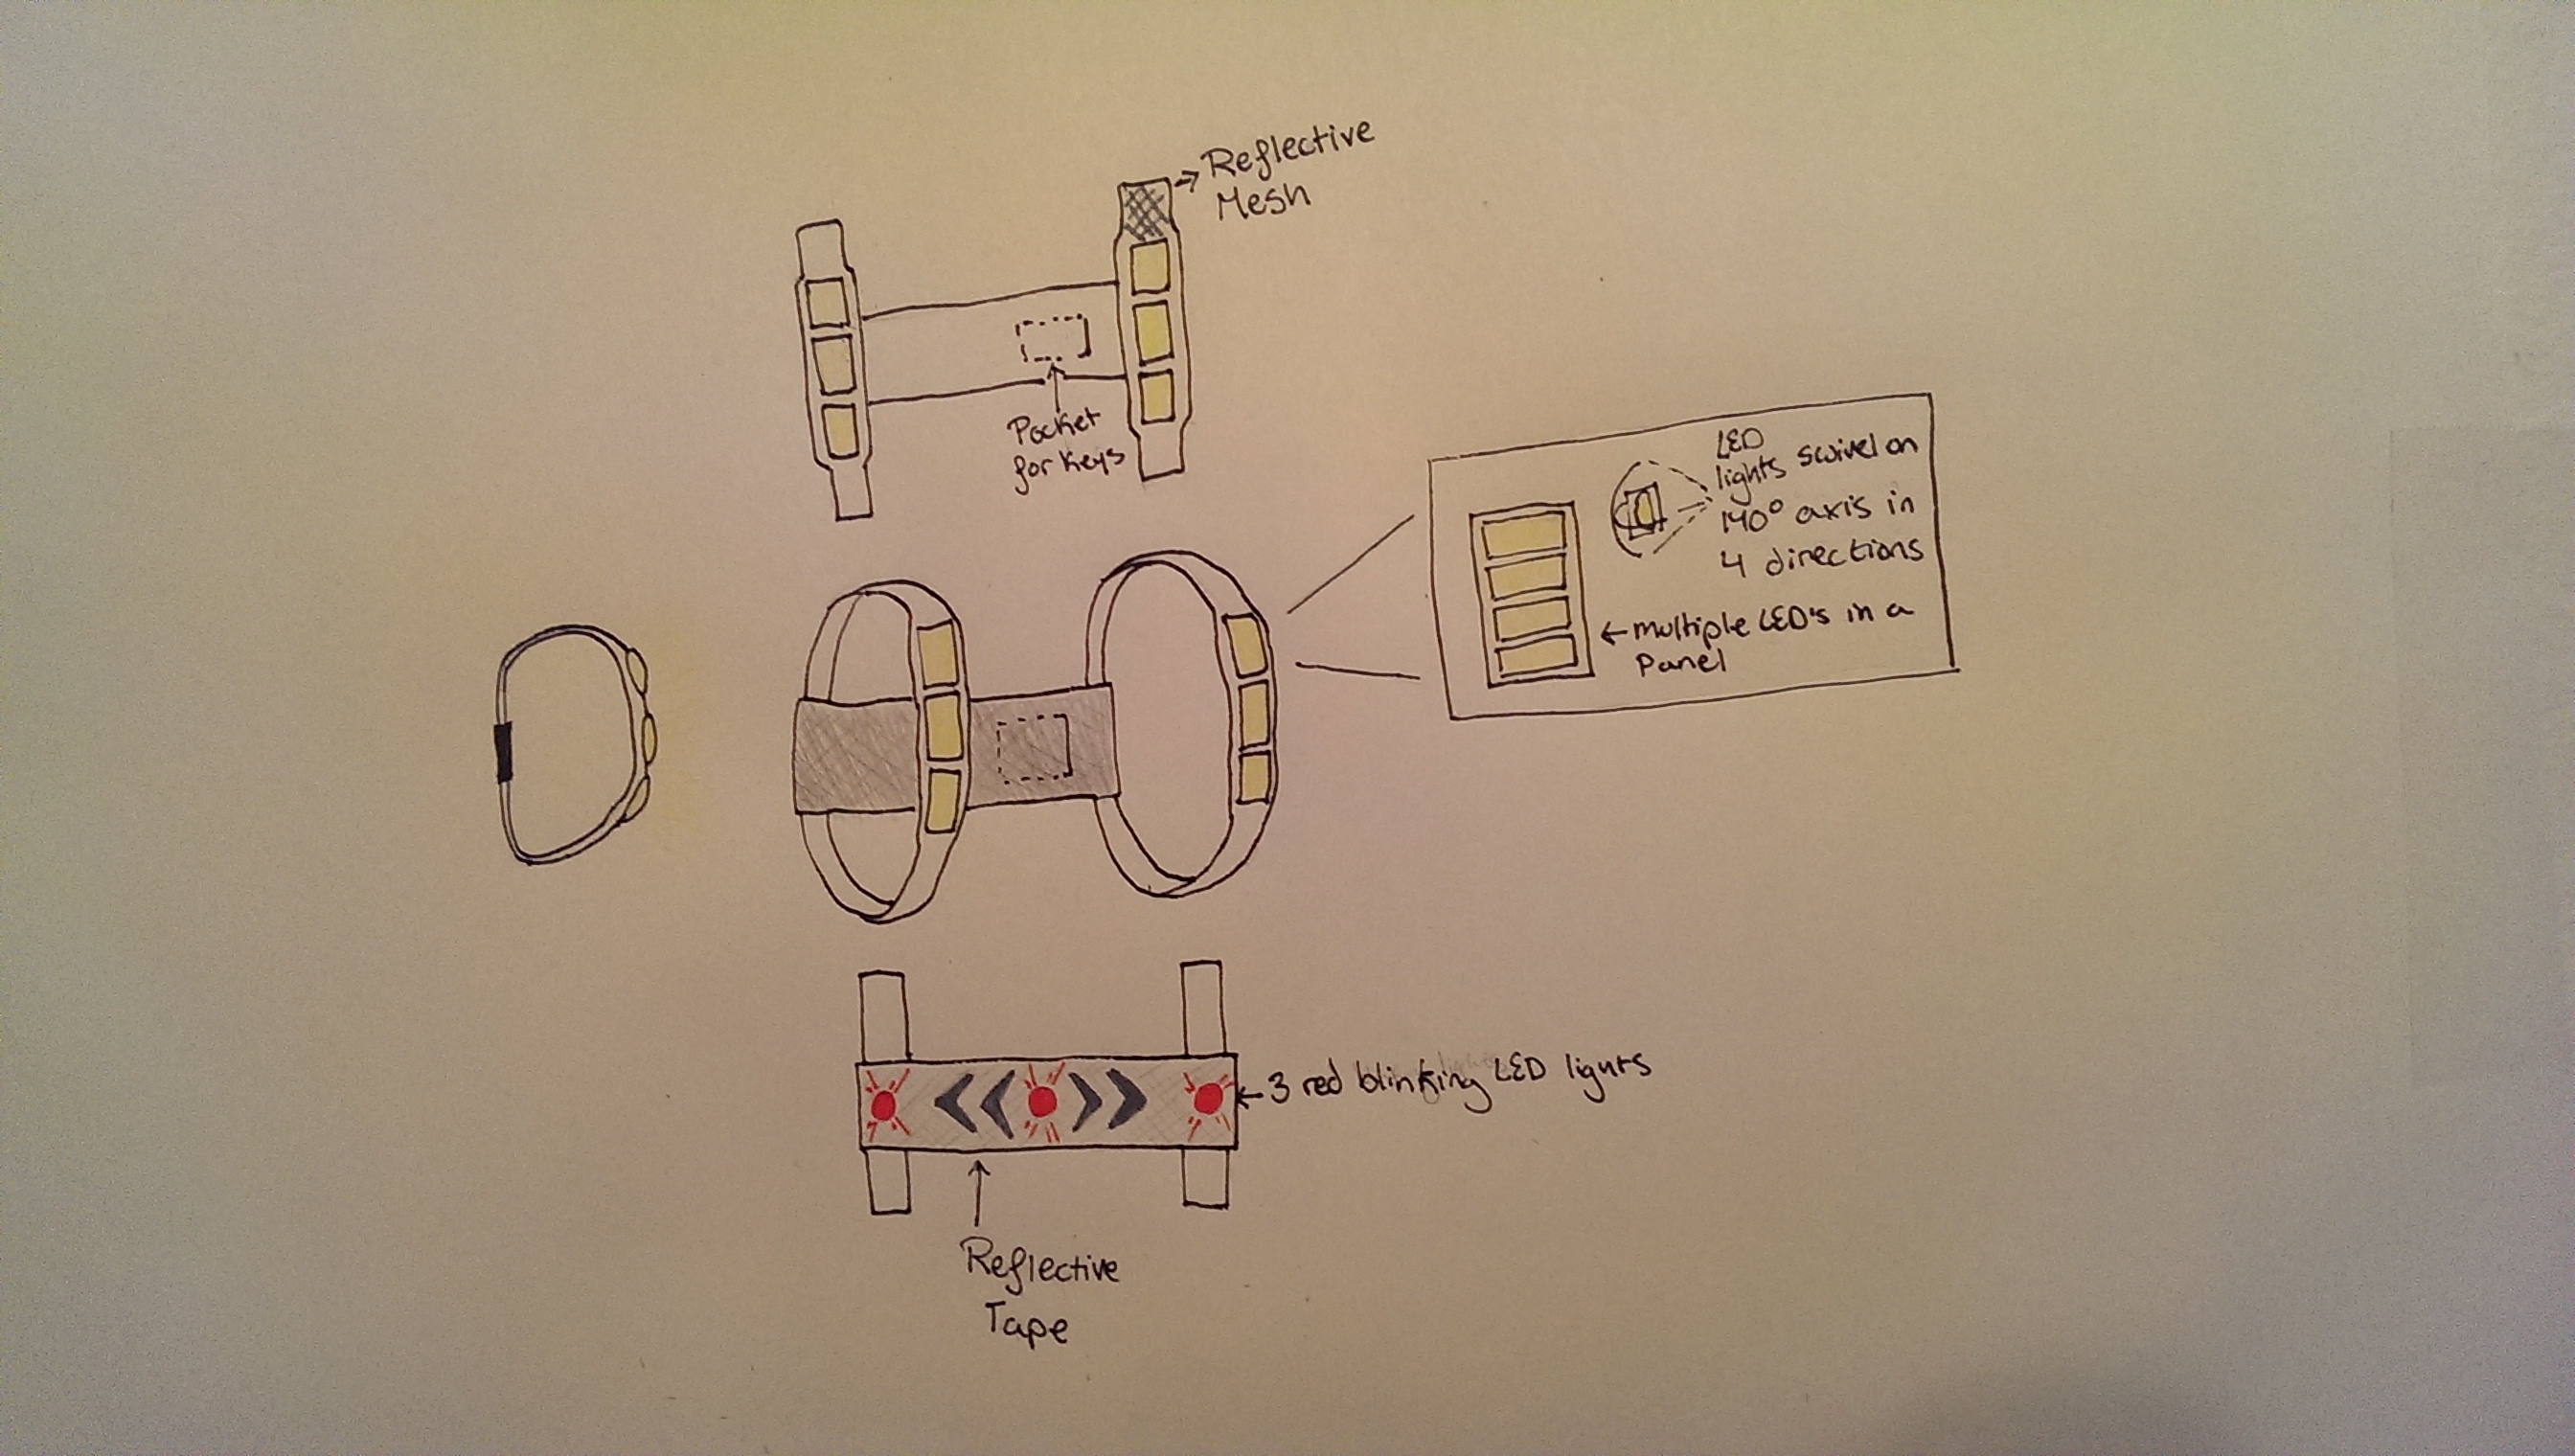 Reflective
Mesh
Pocket
for Keys
LED
lights swivel on
140° axis in
4 directions
←multiple LED's in a
Panel
←3 red blinking LED lights
Reflective
Tape